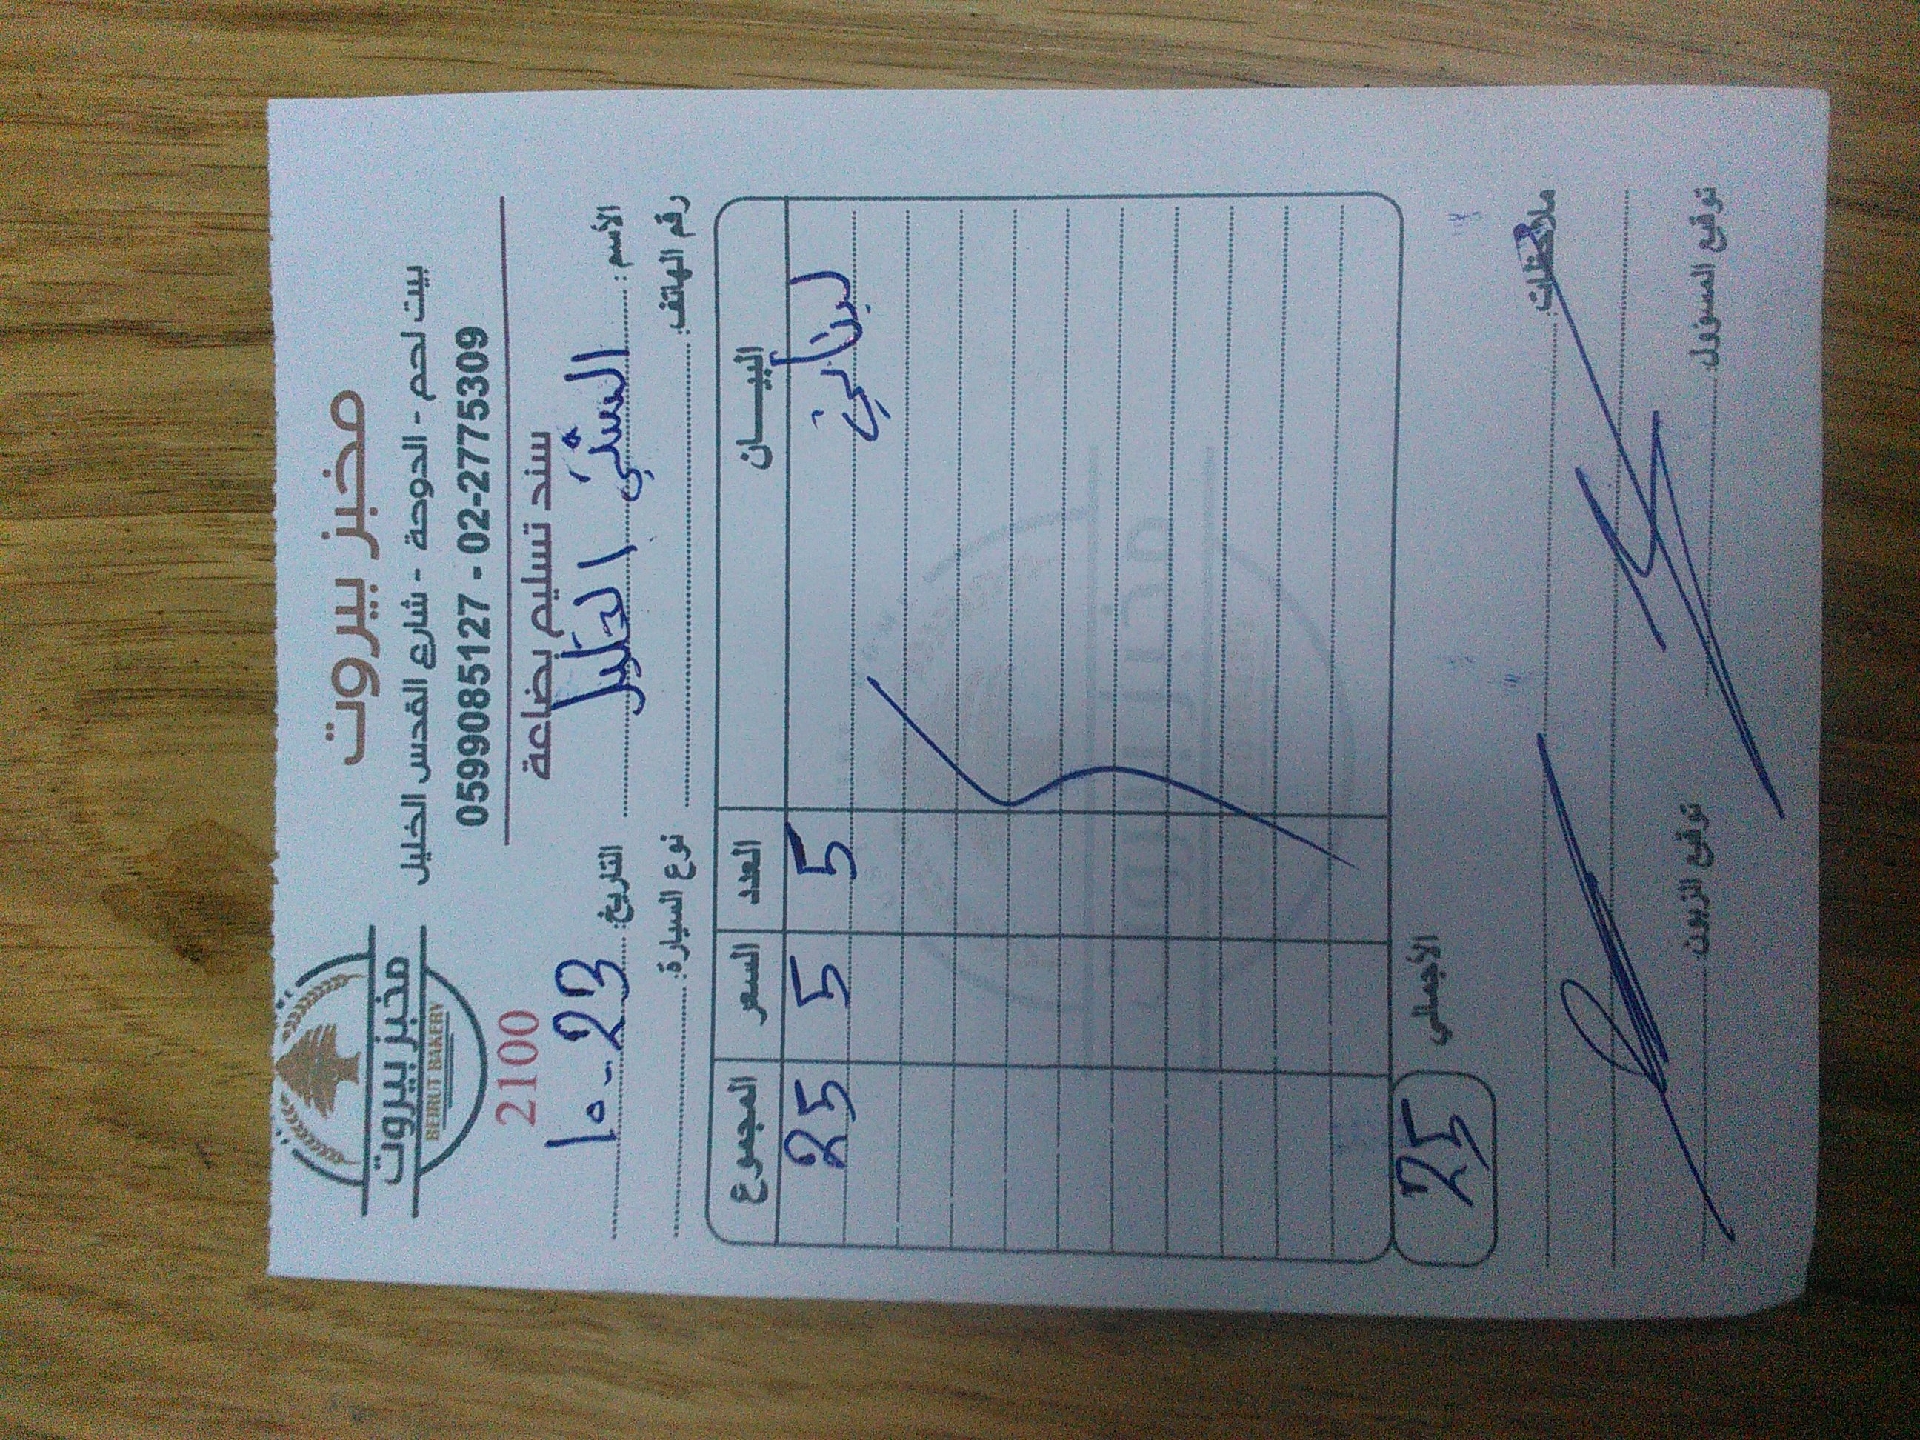 مخبز بيروت
بيت لحم - الدوحة - شارع القدس الخليل
0599085127 - 02-2775309
مخبز بيروت
BEIRUT BAKERY
سند تسليم بضاعة
2100
الأسم:
التاريخ: 23-10
رقم الهاتف:
نوع السيارة:
البيـــان العدد السعر المجموع
لبناني 5 5 25
الأجمالي 25
ملاحظات:
توقيع المسؤول توقيع الزبون